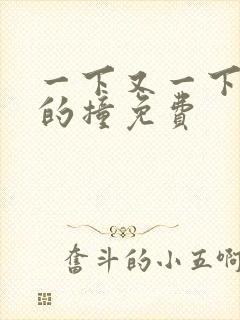 一下又一下
的撞免费
奋斗的小五啊